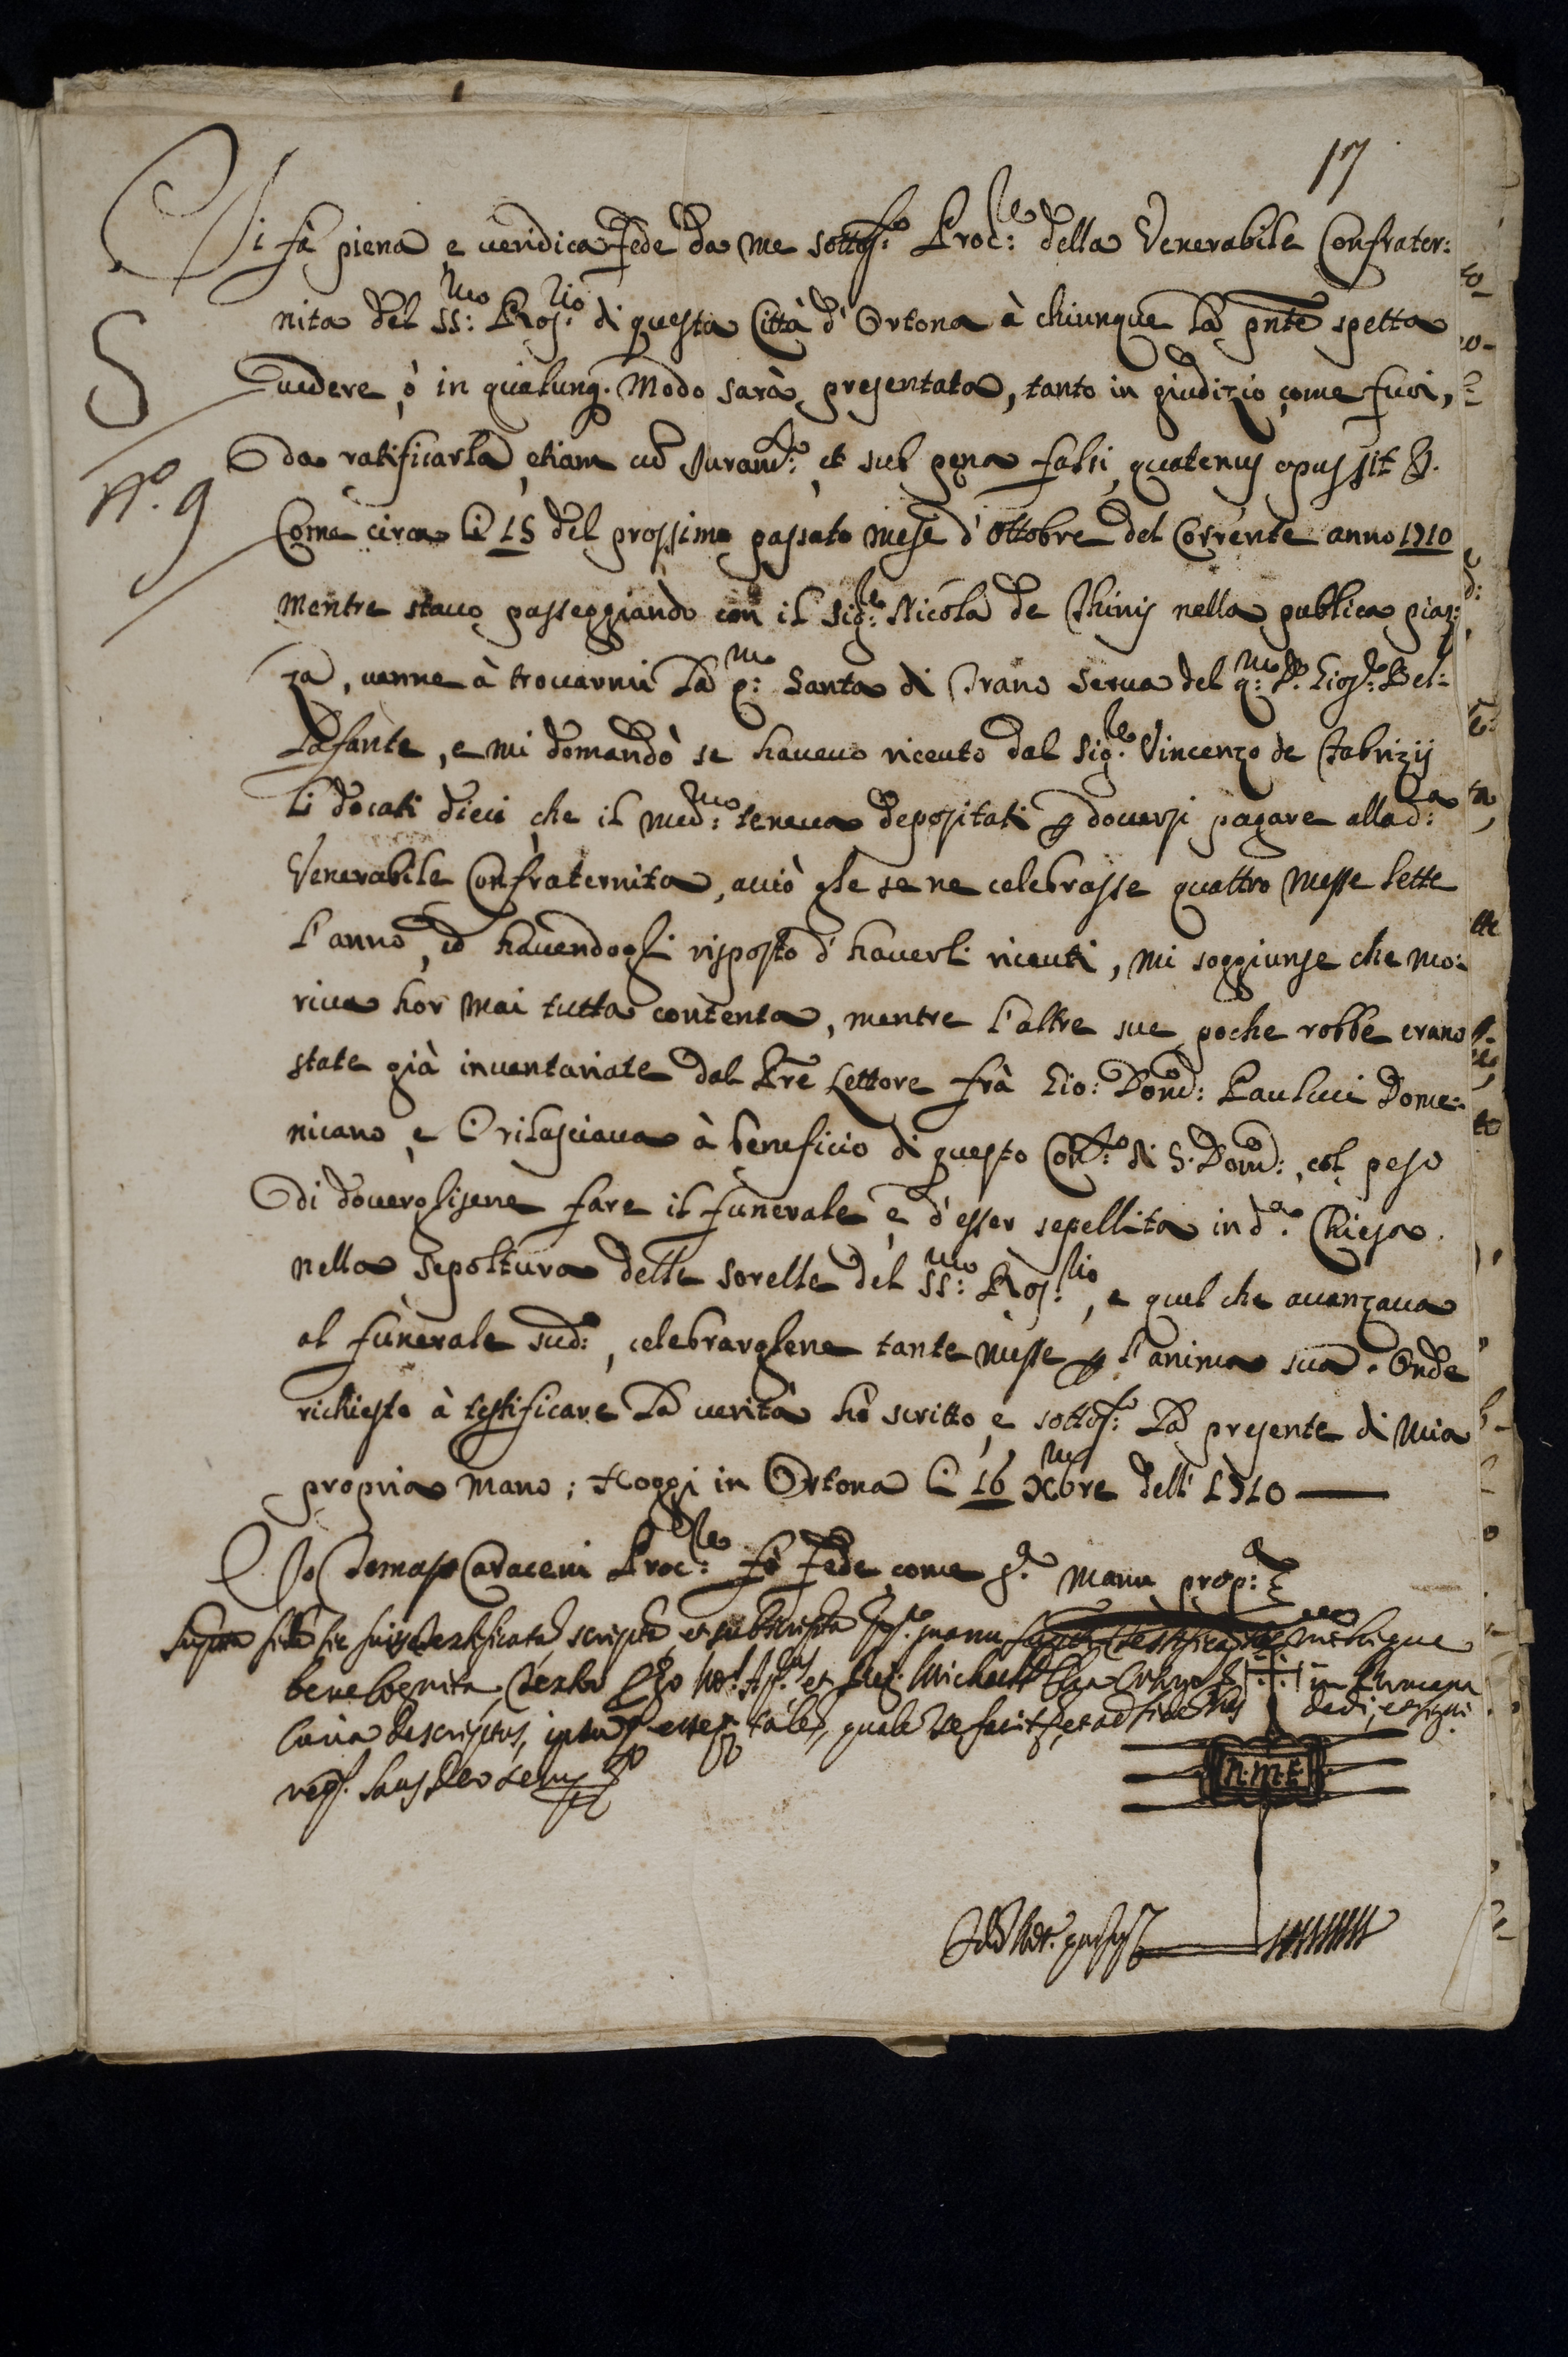 17
Si fà piena e ueridica fede da me sottos.to Proc:le della Venerabile Confrater:
nita del SS:mo Ros:rio di questa Città d'Ortona à chiunque la pnte spetta
S
uedere, ò in qualunq. modo sarà presentata, tanto in giudizio come fuori,
da ratificarla etiam cū Iuram:to et sub pena falsi quatenus opus sit &.
N.o 9
Come circa li 15 del prossimo passato mese d'Ottobre del Corrente anno 1710
mentre stauo passeggiando con il Sig:re Nicola de Thinis nella publica piaz:
za, uenne à trouarmi la q:m Santa di Trano serua del q:m D. Gios:e Bel:
lafante, e mi domandò se haueuo riceuto dal Sig:re Vincenzo de Fabrizij
li docati dieci che il med:mo teneua depositati p douersi pagare alla d:a
Venerabile Confraternita, acciò gle se ne celebrasse quattro messe lette
l'anno, ed hauendogli risposto d'hauerli riceuti, mi soggiunse che mo:
riua hor mai tutta contenta, mentre l'altre sue poche robbe erano
state già inuentariate dal Pre Lettore frà Gio: Dom:co Paulucci Dome:
nicano, e li rilasciaua à beneficio di questo Con:to di S. Dom:co, col peso
di douerglisene fare il funerale e d'esser sepellita in d.a Chiesa
nella sepoltura delle sorelle del SS:mo Ros:rio, e quel che auanzaua
al funerale sud:o, celebrarglene tante messe p l'anima sua. Onde
richiesto à testificare la uerità hò scritto, e sottos:to la presente di mia
propria mano; Hoggi in Ortona li 16 Xmbre dell' 1710
Io Tomaso Caraceni Proc:le fò fede come s.a manu prop:a
fidē sic fuisse testificatā, scriptā, et subscriptā manu mihique
bene cognita, testor Ego Not.s Ap.cus et in Romana
Curia descriptus, esse talē, qualē se facit, et ad fidē dedi, et signi
reqs. Laus Deo semp
N.M.E.
Idē Not. qui sup.